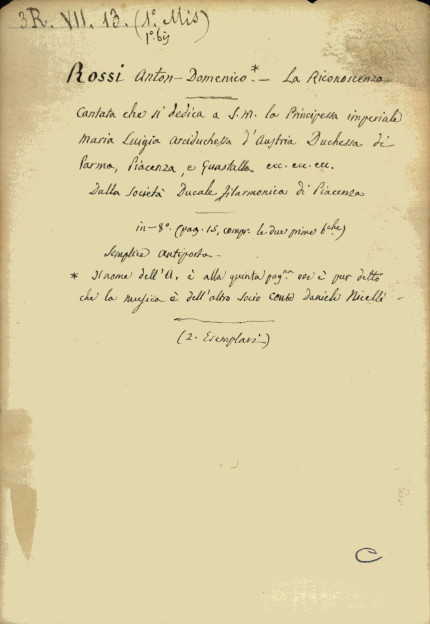 3R. VII. 13. (1º. Mis)
1º. bis
Rossi Anton-Domenico.* - La Riconoscenza
Cantata che si dedica a S. M. la Principessa imperiale
Maria Luigia Arciduchessa d'Austria Duchessa di
Parma, Piacenza, e Guastalla ecc. ecc. ecc.
Dalla Società Ducale filarmonica di Piacenza
in-8º. (pag. 15, compr. le due prime bche)
Semplice Antiporta.
* Il nome dell'A. è alla quinta pagna ove è pur detto
che la musica è dell'altro socio Conte Daniele Nicelli -
(2. Esemplari)
C